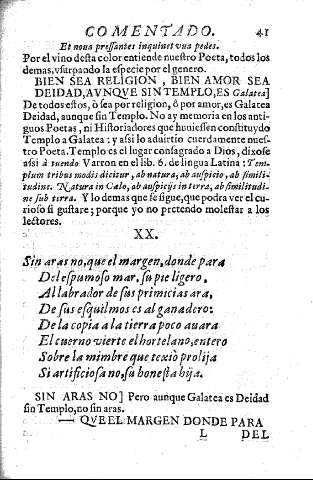 COMENTADO. 41
Et noua pressantes inquinet vua pedes.
Por el vino desta color entiende nuestro Poeta, todos los
demas, vsurpando la especie por el genero.
BIEN SEA RELIGION, BIEN AMOR SEA
DEIDAD, AVNQVE SIN TEMPLO, ES Galatea]
De todos estos, ò sea por religion, ô por amor, es Galatea
Deidad, aunque sin Templo. No ay memoria en los anti-
guos Poetas, ni Historiadores que huuiessen constituydo
Templo a Galatea: y assi lo aduirtio cuerdamente nues-
tro Poeta. Templo es el lugar consagrado a Dios, dixose
assi à tuendo Varron en el lib. 6. de lingua Latina: Tem-
plum tribus modis dicitur, ab natura, ab auspicio, ab simili-
tudine. Natura in Cælo, ab auspicijs in terra, ab similitudi-
ne sub terra. Y lo demas que se sigue, que podra ver el cu-
rioso si gustare; porque yo no pretendo molestar a los
lectores.
XX.
Sin aras no, que el margen, donde para
Del espumoso mar, su pie ligero,
Al labrador de sus primicias ara,
De sus esquilmos es al ganadero:
De la copia a la tierra poco auara
El cuerno vierte el hortelano, entero
Sobre la mimbre que texiò prolija
Si artificiosa no, su honesta hija.
SIN ARAS NO] Pero aunque Galatea es Deidad
sin Templo, no sin aras.
— QVE EL MARGEN DONDE PARA
L DEL